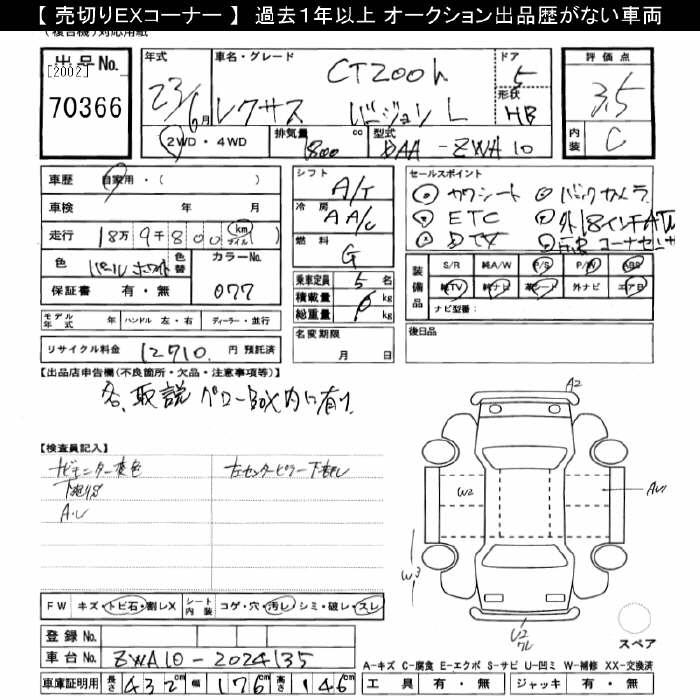 【 売切りEXコーナー 】 過去1年以上 オークション出品歴がない車両
(複合機)対応用紙
出品No.
[2002]
70366
年式
23/6月
車名・グレード
CT200h
レクサス バージョン L
ドア
5
形状
HB
評価点
3.5
内装
C
2WD・4WD
排気量
1800 cc
型式
DAA-ZWA10
車歴 自家用・( )
車検 年 月
走行 18万9千800 (km マイル)
色 パールホワイト 色替 カラーNo. 077
保証書 有・無
シフト A/T
冷房 AA/C
燃料 G
乗車定員 5 名
積載量 kg
総重量 kg
セールスポイント
カワシート バックカメラ
ETC 外18インチAW
コーナーセンサー
装備品
S/R 純A/W P/S P/W ABS
純TV 純ナビ 革シート 外ナビ エアB
ナビ型番:
モデル年式 年 ハンドル 左・右 ディーラー・並行
リサイクル料金 12710. 円 預託済
名変期限
月 日
後日品
【出品店申告欄(不良箇所・欠品・注意事項等)】
名、取説 グローBOX内に有り
【検査員記入】
ナビモニター変色 左センターピラー下押し
下廻りS
A・U
A2
W2
AU1
W3
U2
スペア
FW キズ・トビ石・割レX シート内装 コゲ・穴・汚レ・シミ・破レ・スレ
登録No.
車台No. ZWA10-2024135
車庫証明用 長さ 432cm 幅 176cm 高さ 146cm
A-キズ C-腐食 E-エクボ S-サビ U-凹ミ W-補修 XX-交換済
工具 有・無 ジャッキ 有・無